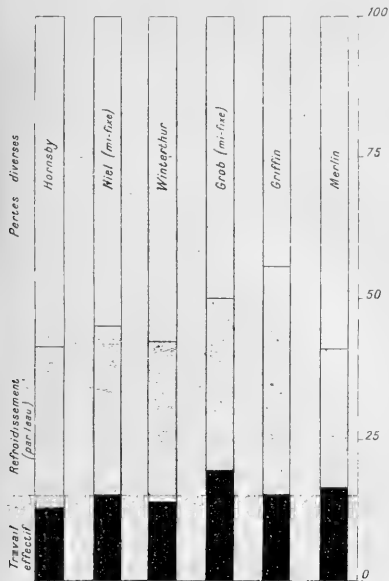 Pertes diverses
Refroidissement
(par l'eau)
Travail
effectif
Hornsby
Niel (mi-fixe)
Winterthur
Grob (mi-fixe)
Griffin
Merlin
100
75
50
25
0